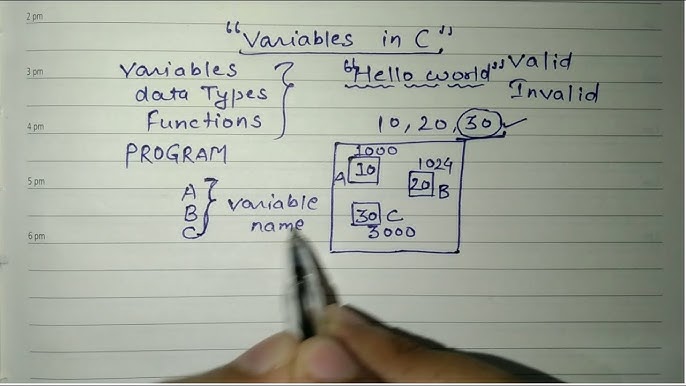 2 pm
"Variables in C"
3 pm
Variables
data Types
Functions
"Hello world"
Valid
Invalid
10, 20, 30
4 pm
PROGRAM
1000
A 10
1024
20 B
30 C
3000
5 pm
A
B
C
variable
name
6 pm